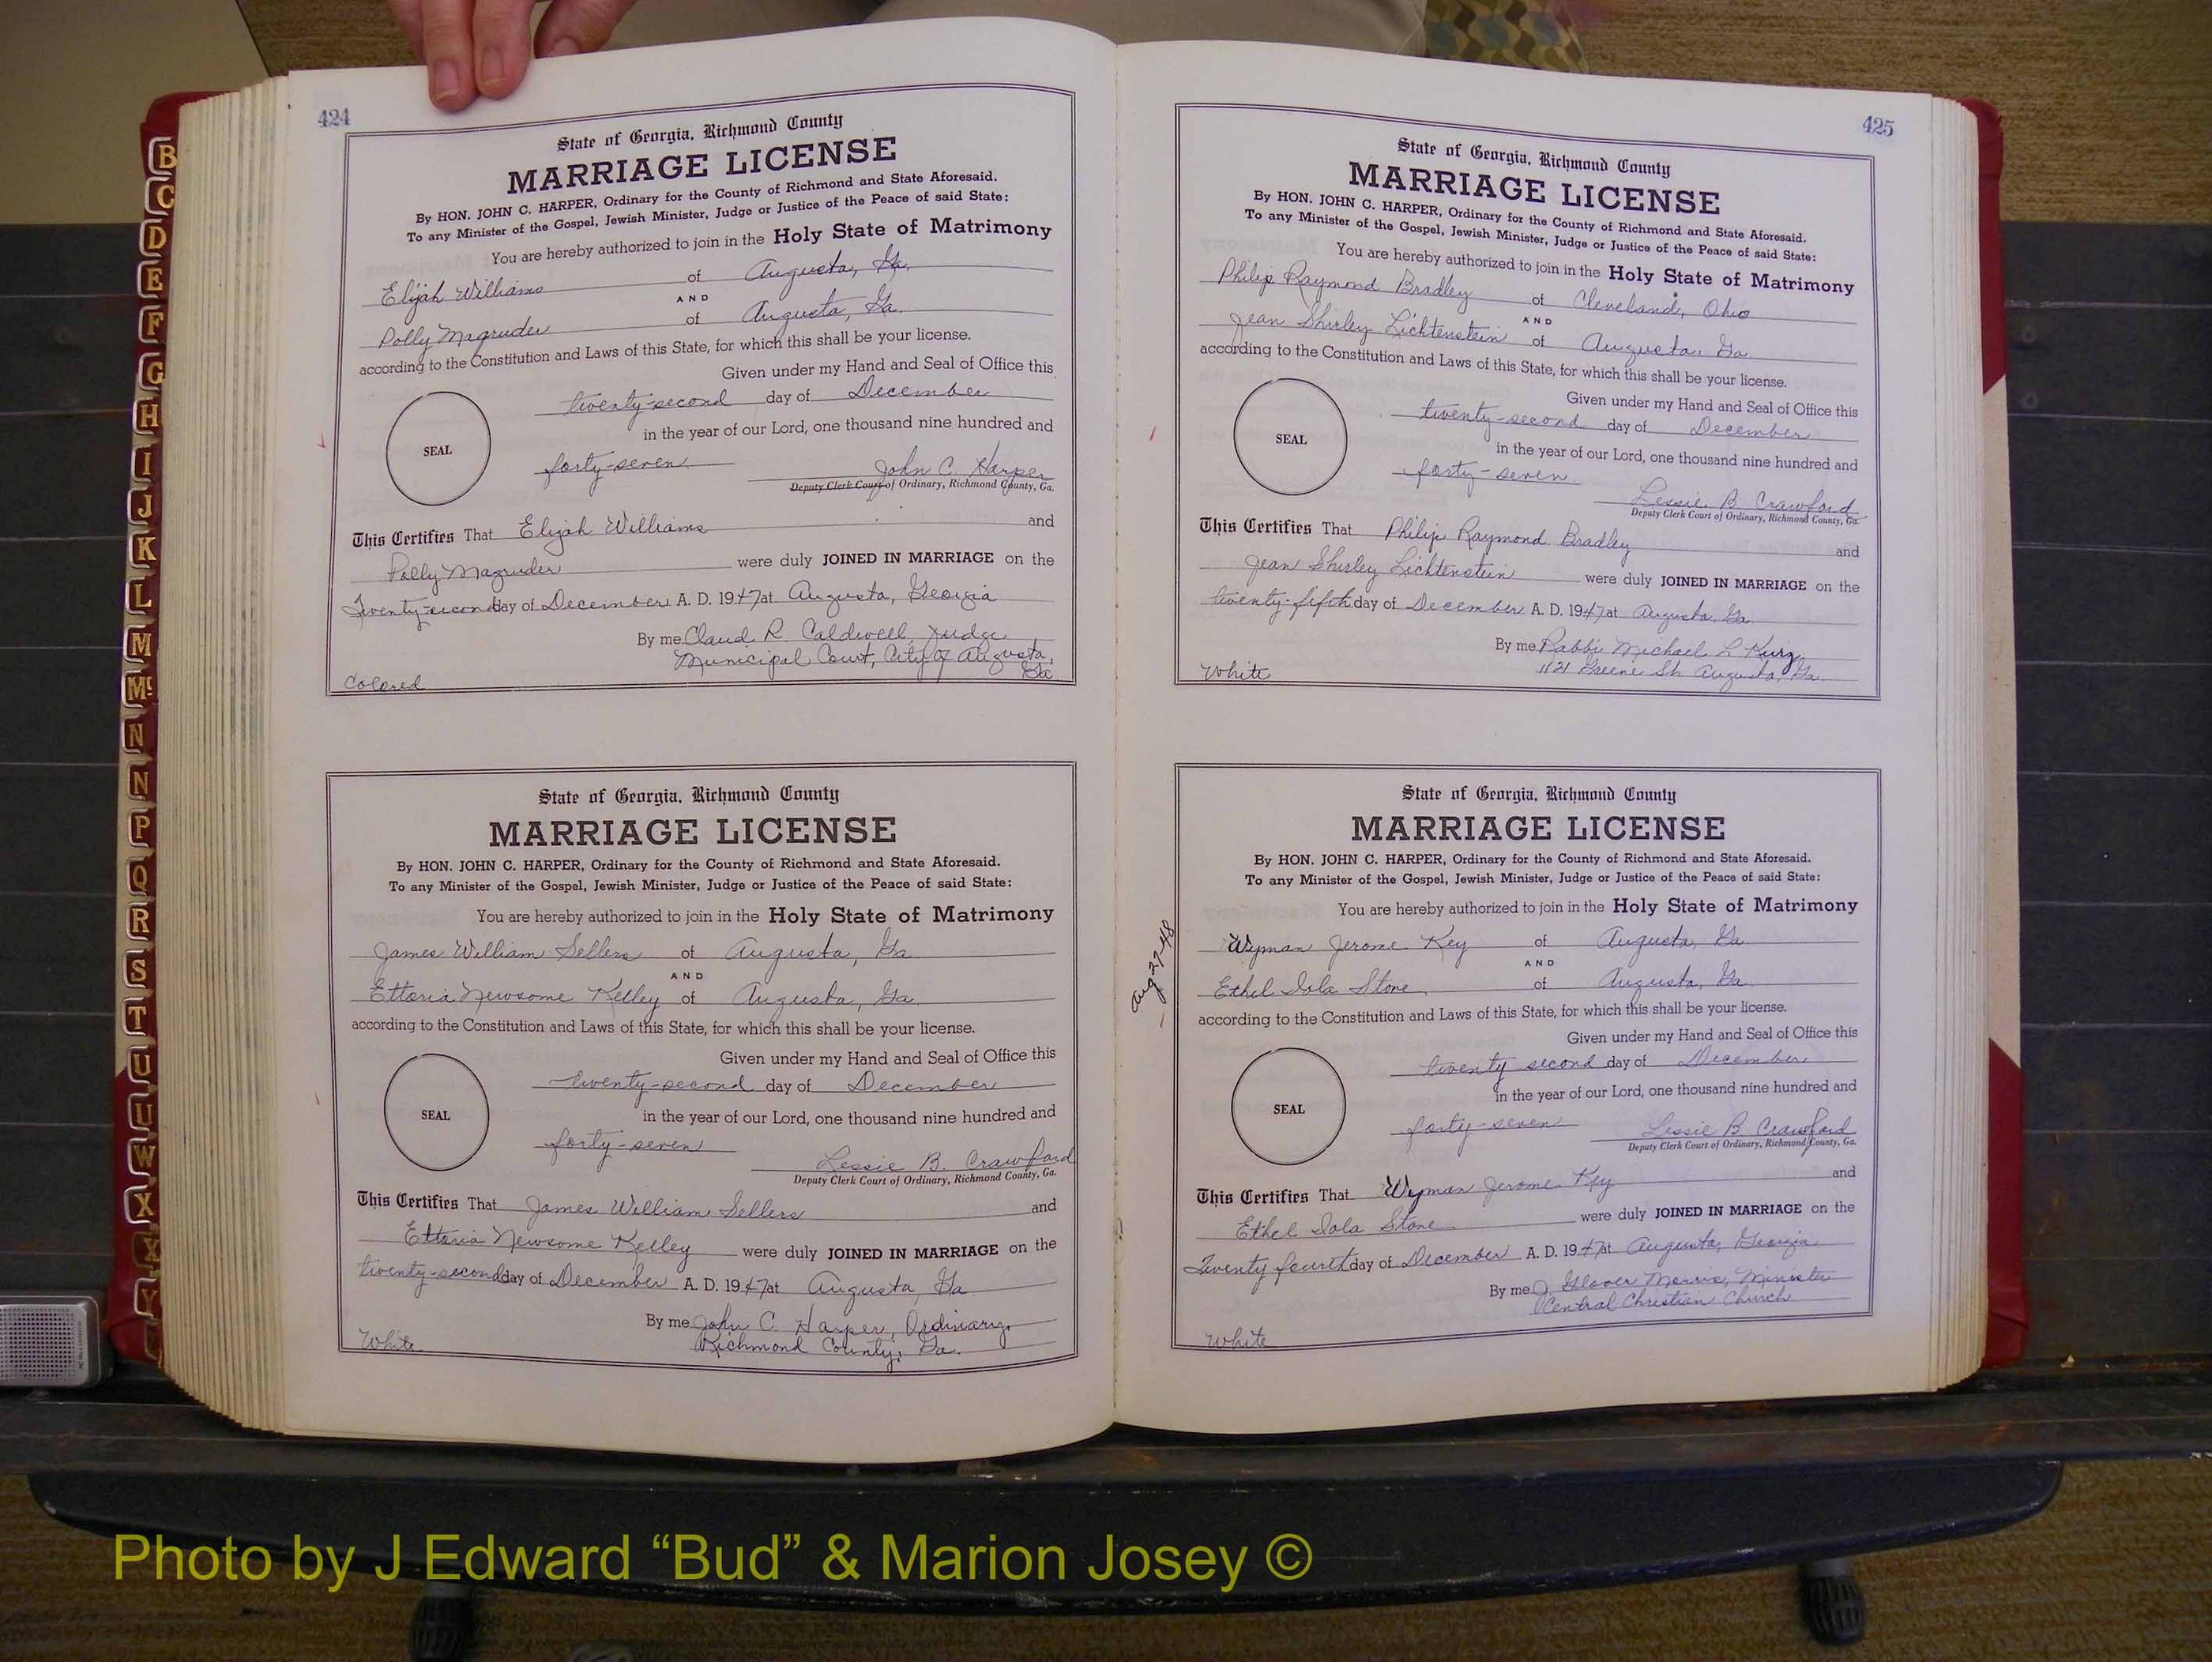 B
C
D
E
F
G
H
I
J
K
L
M
Mc
N
N
P
Q
R
S
T
U
U
W
X
X
Y
424
State of Georgia, Richmond County
MARRIAGE LICENSE
By HON. JOHN C. HARPER, Ordinary for the County of Richmond and State Aforesaid.
To any Minister of the Gospel, Jewish Minister, Judge or Justice of the Peace of said State:
You are hereby authorized to join in the Holy State of Matrimony
Elijah Williams of Augusta, Ga.
AND
Polly Magruder of Augusta, Ga.
according to the Constitution and Laws of this State, for which this shall be your license.
Given under my Hand and Seal of Office this
twenty-second day of December
in the year of our Lord, one thousand nine hundred and
SEAL
forty-seven. John C. Harper
Deputy Clerk Court of Ordinary, Richmond County, Ga.
This Certifies That Elijah Williams and
Polly Magruder were duly JOINED IN MARRIAGE on the
Twenty-second day of December A. D. 1947 at Augusta, Georgia
By me Claud R. Caldwell, Judge
Municipal Court, City of Augusta,
Ga.
Colored
State of Georgia, Richmond County
MARRIAGE LICENSE
By HON. JOHN C. HARPER, Ordinary for the County of Richmond and State Aforesaid.
To any Minister of the Gospel, Jewish Minister, Judge or Justice of the Peace of said State:
You are hereby authorized to join in the Holy State of Matrimony
James William Sellers of Augusta, Ga.
AND
Ettoria Newsome Kelley of Augusta, Ga.
according to the Constitution and Laws of this State, for which this shall be your license.
Given under my Hand and Seal of Office this
twenty-second day of December
in the year of our Lord, one thousand nine hundred and
SEAL
forty-seven Lessie B. Crawford
Deputy Clerk Court of Ordinary, Richmond County, Ga.
This Certifies That James William Sellers and
Ettoria Newsome Kelley were duly JOINED IN MARRIAGE on the
twenty-second day of December A. D. 1947 at Augusta, Ga.
By me John C. Harper, Ordinary,
Richmond County, Ga.
White
425
State of Georgia, Richmond County
MARRIAGE LICENSE
By HON. JOHN C. HARPER, Ordinary for the County of Richmond and State Aforesaid.
To any Minister of the Gospel, Jewish Minister, Judge or Justice of the Peace of said State:
You are hereby authorized to join in the Holy State of Matrimony
Philip Raymond Bradley of Cleveland, Ohio
AND
Jean Shirley Lichtenstein of Augusta, Ga.
according to the Constitution and Laws of this State, for which this shall be your license.
Given under my Hand and Seal of Office this
twenty-second day of December
in the year of our Lord, one thousand nine hundred and
SEAL
forty-seven. Lessie B. Crawford
Deputy Clerk Court of Ordinary, Richmond County, Ga.
This Certifies That Philip Raymond Bradley and
Jean Shirley Lichtenstein were duly JOINED IN MARRIAGE on the
twenty-fifth day of December A. D. 1947 at Augusta, Ga.
By me Rabbi Michael L Kurz
1121 Greene St. Augusta, Ga.
White
Aug 27-48
State of Georgia, Richmond County
MARRIAGE LICENSE
By HON. JOHN C. HARPER, Ordinary for the County of Richmond and State Aforesaid.
To any Minister of the Gospel, Jewish Minister, Judge or Justice of the Peace of said State:
You are hereby authorized to join in the Holy State of Matrimony
Wyman Jerome Key of Augusta, Ga.
AND
Ethel Iola Stone of Augusta, Ga.
according to the Constitution and Laws of this State, for which this shall be your license.
Given under my Hand and Seal of Office this
twenty second day of December
in the year of our Lord, one thousand nine hundred and
SEAL
forty-seven Lessie B Crawford
Deputy Clerk Court of Ordinary, Richmond County, Ga.
This Certifies That Wyman Jerome Key and
Ethel Iola Stone were duly JOINED IN MARRIAGE on the
Twenty fourth day of December A. D. 1947 at Augusta, Georgia
By me J. Glover Morris, Minister
Central Christian Church
White
Photo by J Edward “Bud” & Marion Josey ©